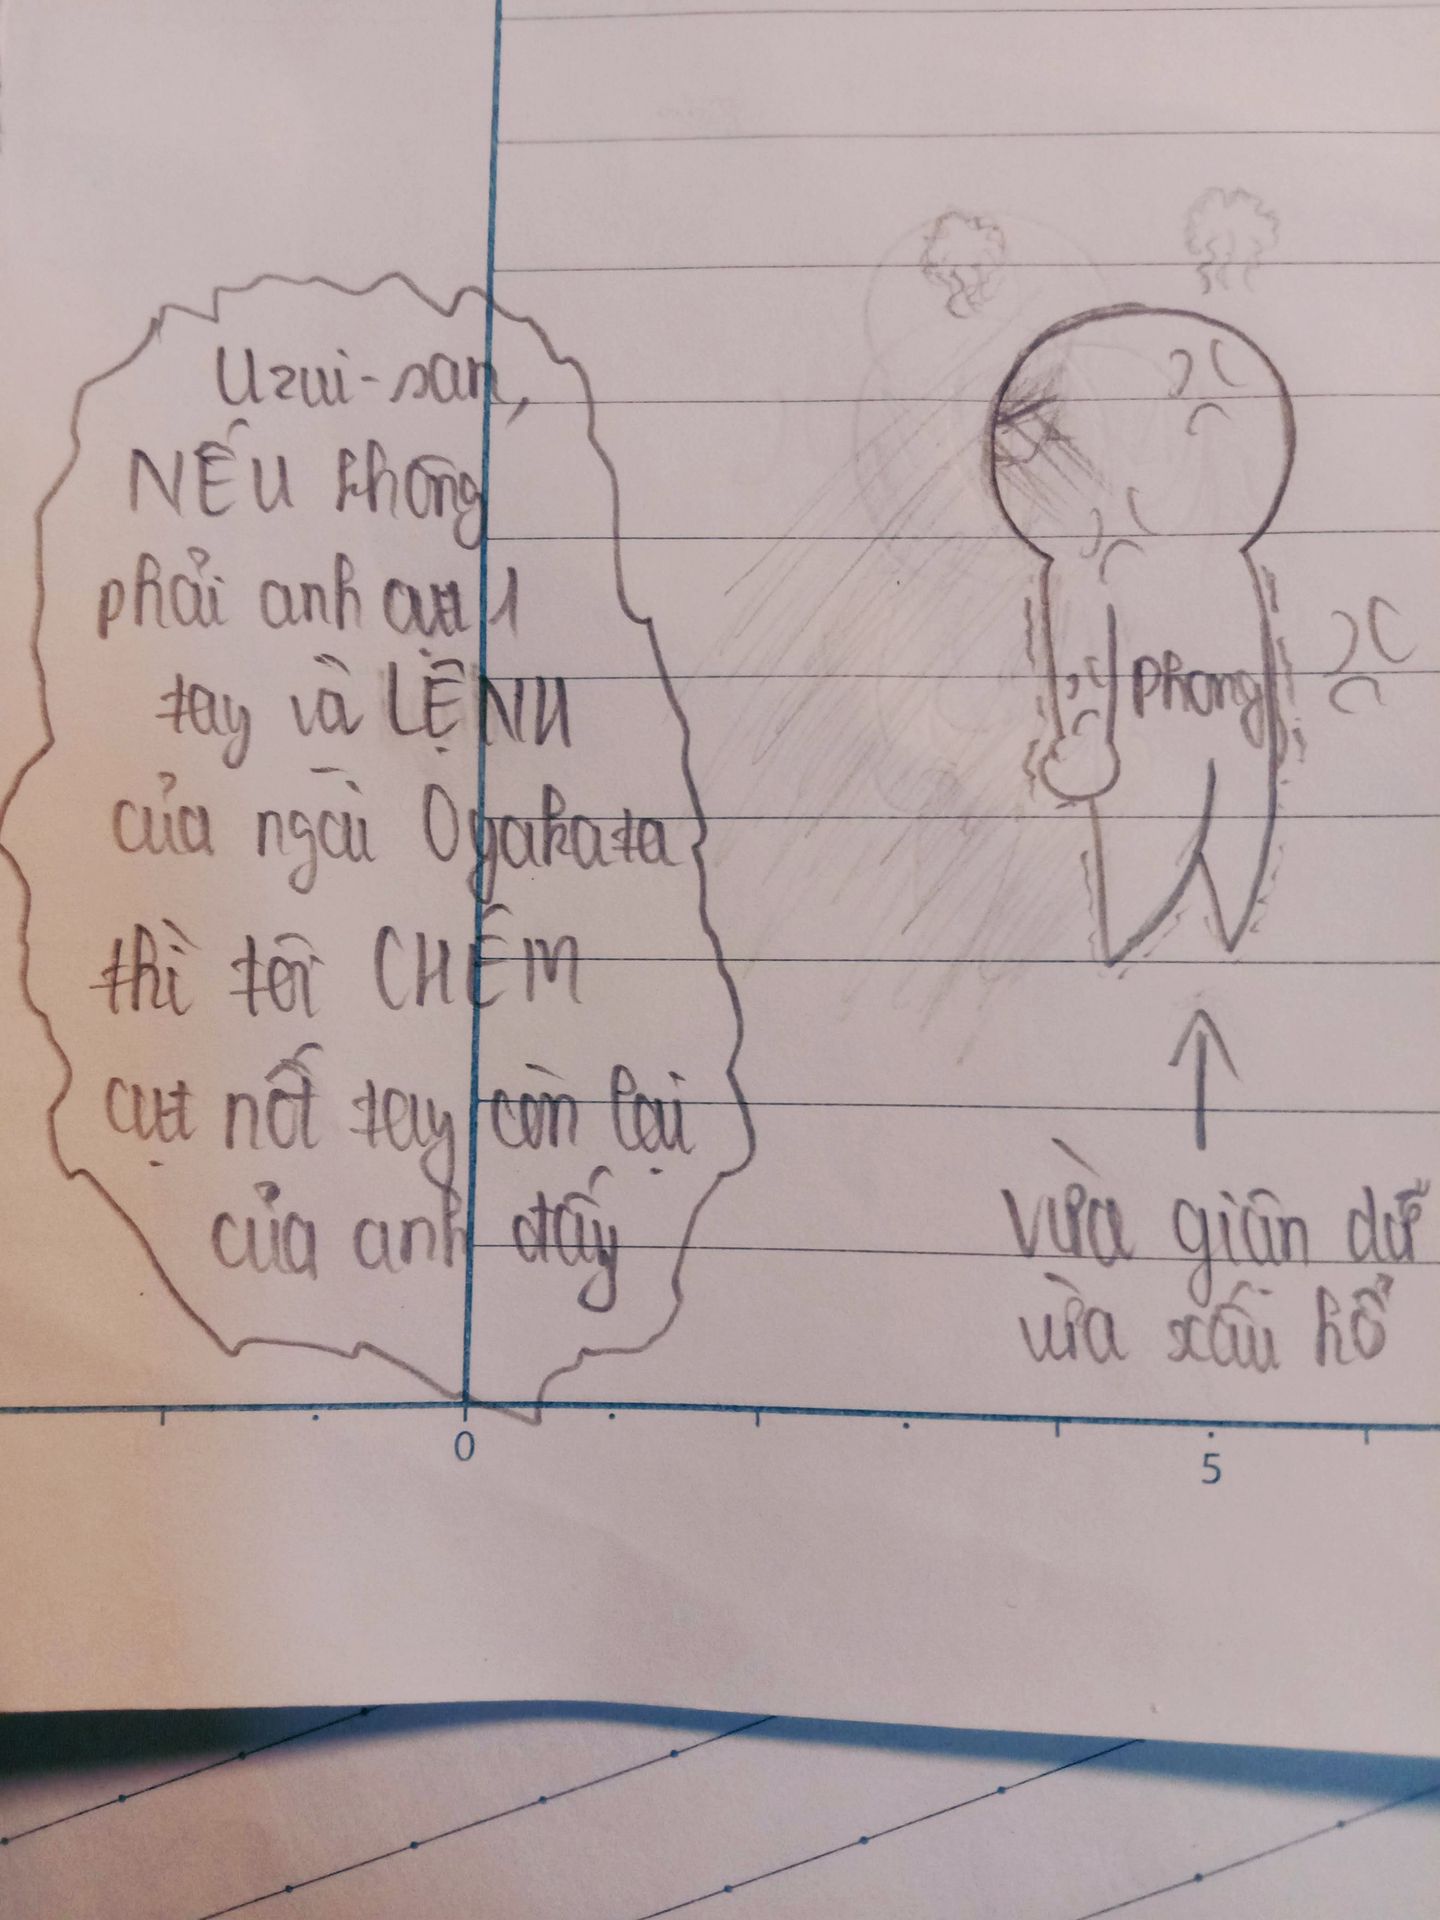 Uzui-san,
NẾU không
phải anh cụt 1
tay và LỆNH
của ngài Oyakata
thì tôi CHÉM
cụt nốt tay còn lại
của anh đấy
Phong
vừa giận dữ
vừa xấu hổ
0
5